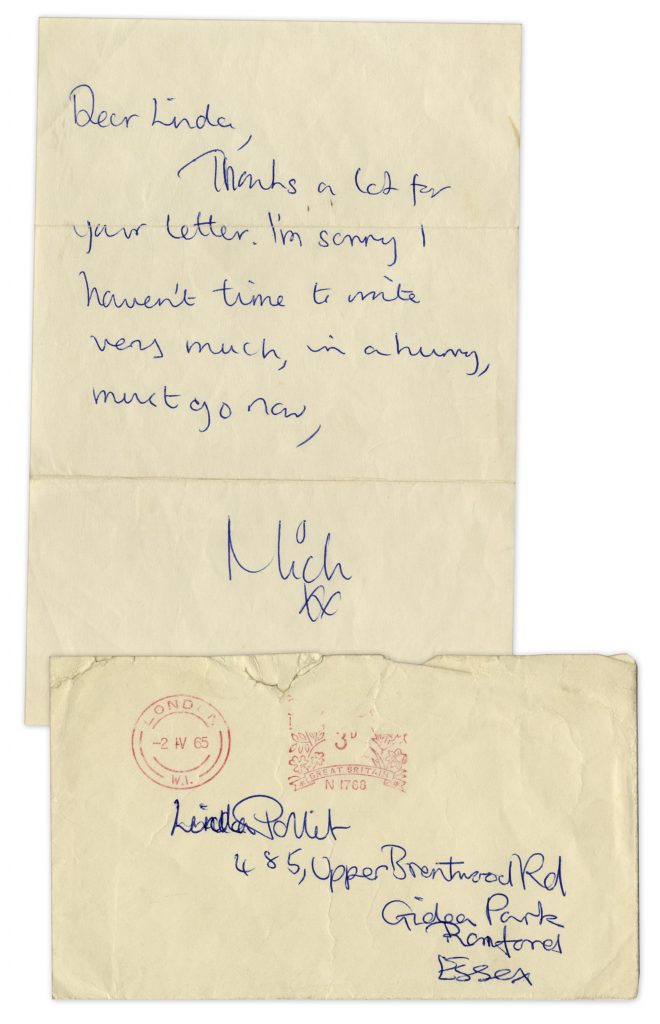 Dear Linda,
Thanks a lot for
your letter. I'm sorry I
haven't time to write
very much, in a hurry,
must go now,
Mick
xx
LONDON
-2 IV 65
W.1.
3D
GREAT BRITAIN
N 1768
Linda Pollit
485, Upper Brentwood Rd
Gidea Park
Romford
Essex